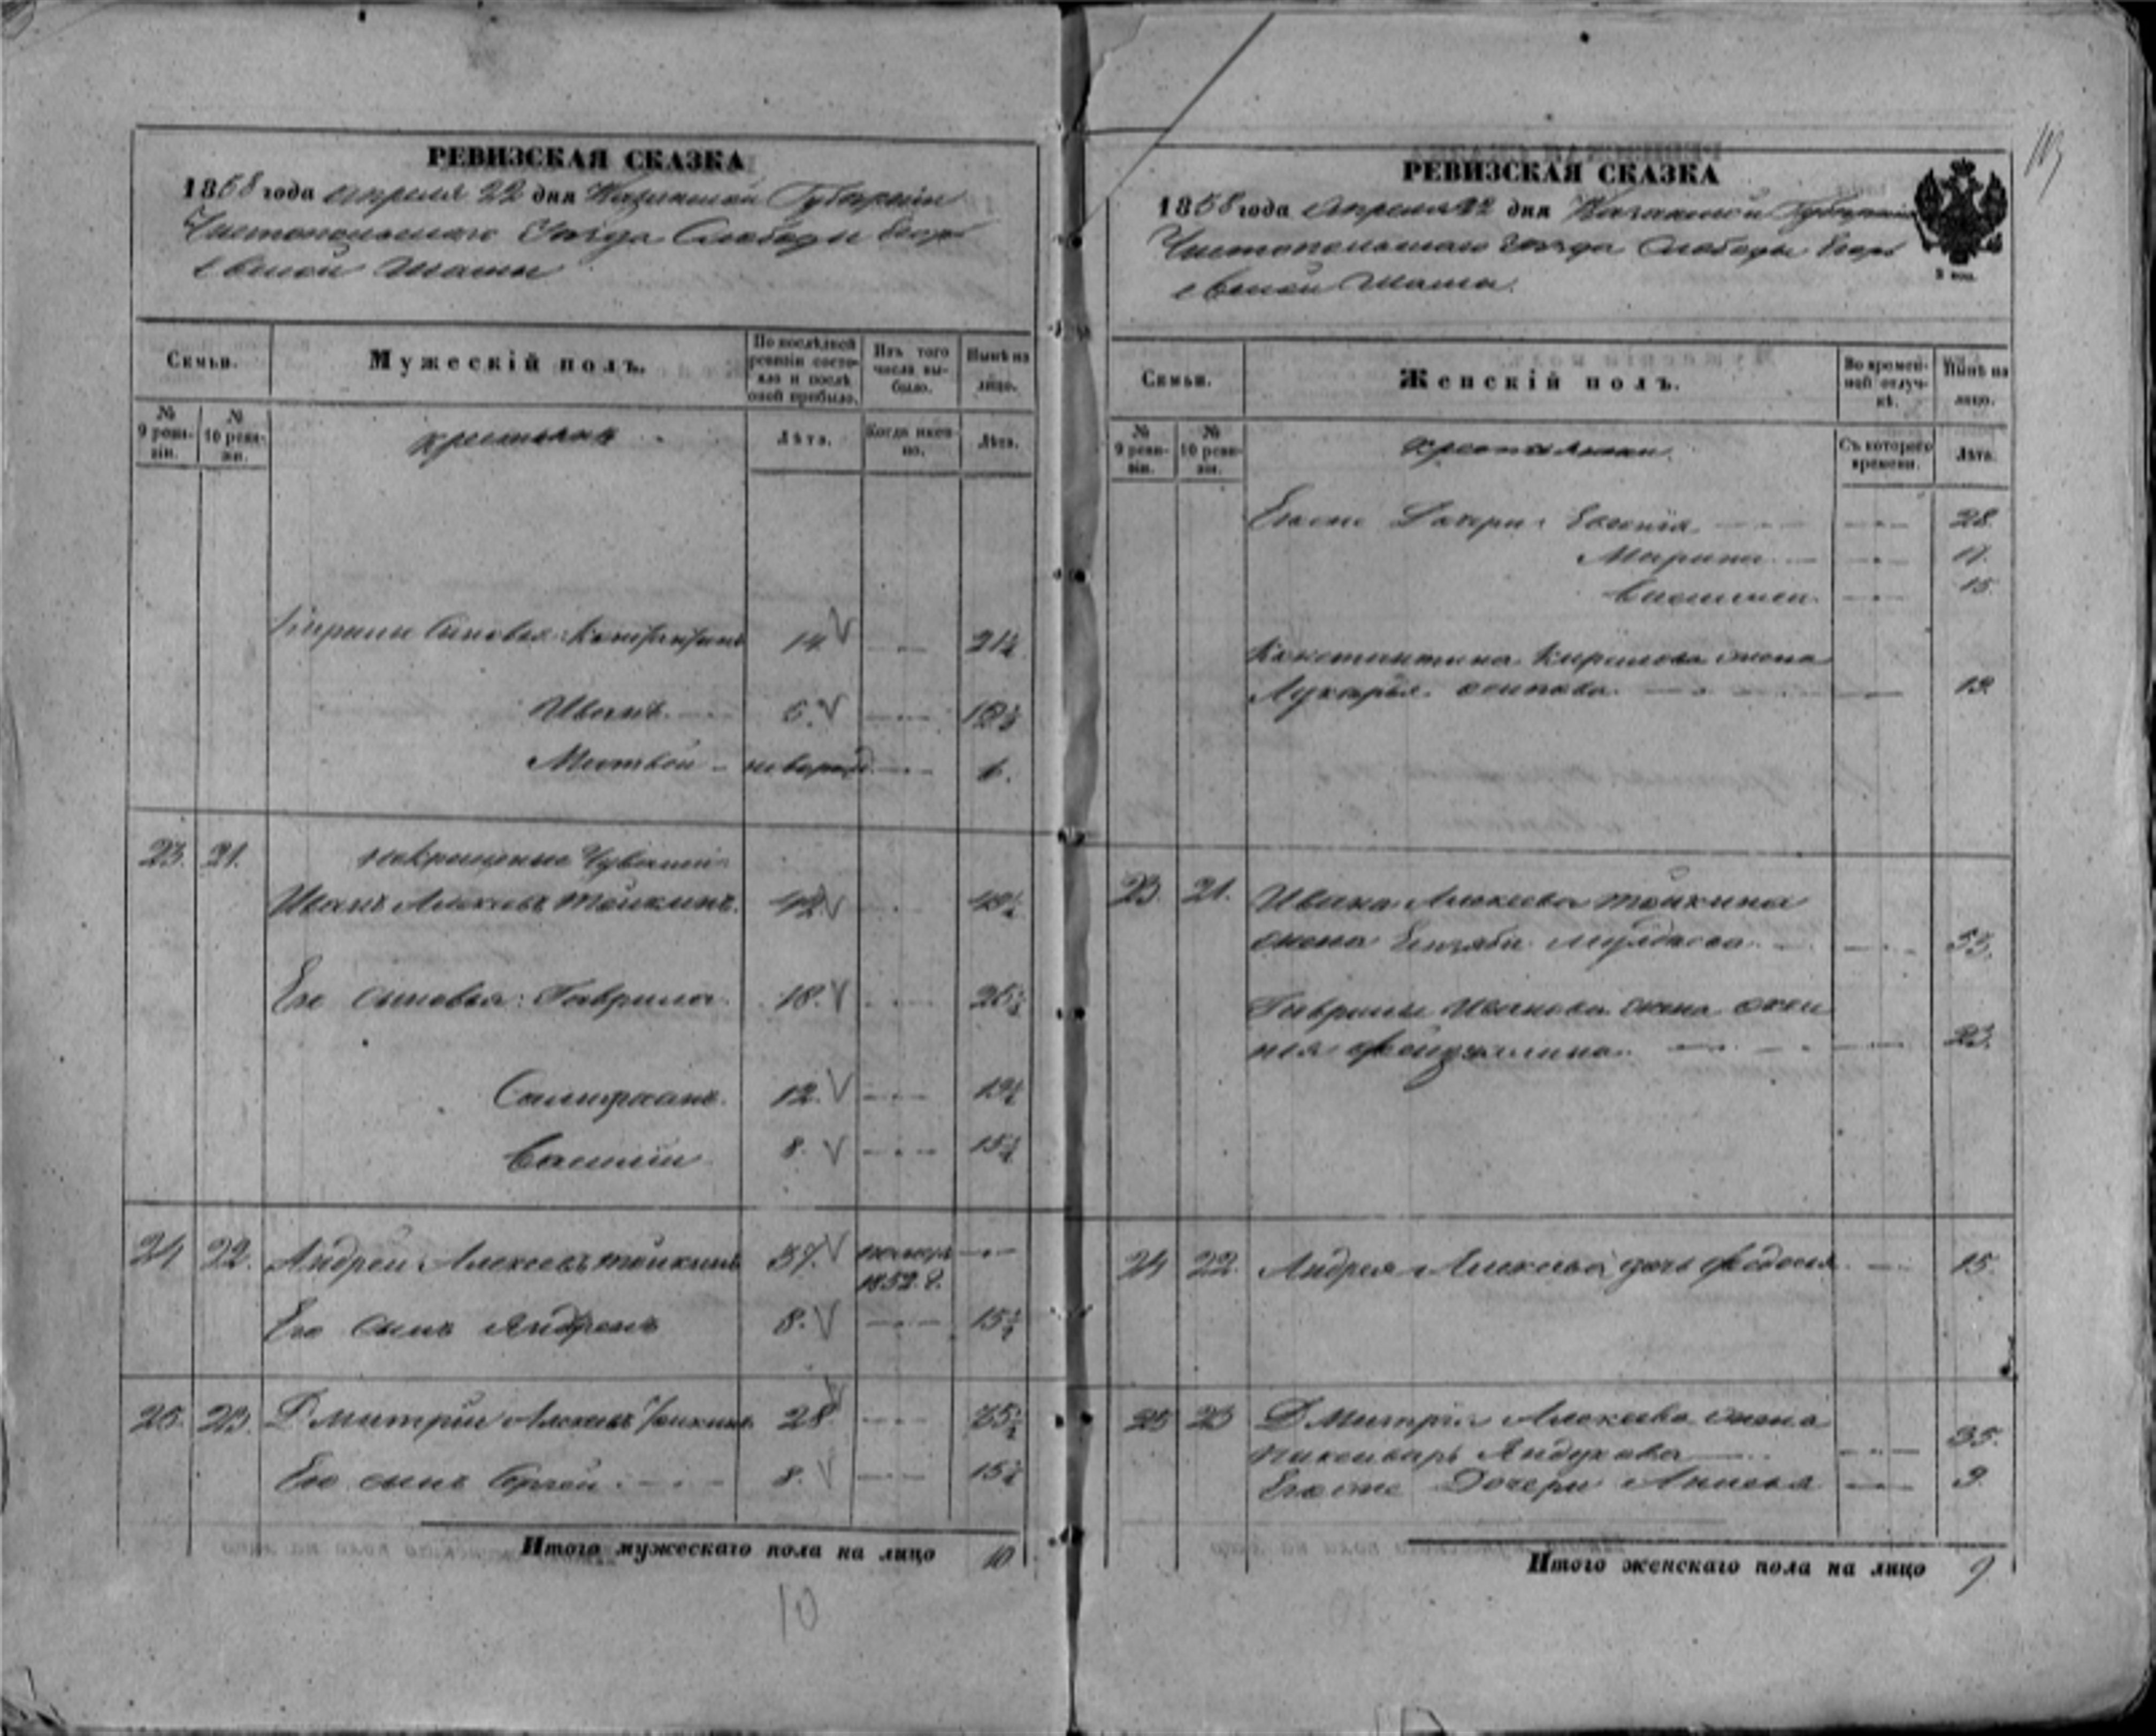 113
РЕВИЗСКАЯ СКАЗКА
1858 года апреля 22 дня Казанской Губернии
Чистопольскаго Уезда Слободы Егорь
евской Шамы
Семьи.
Мужескій полъ.
По послѣдней ревизіи состояло и послѣ оной прибыло.
Изъ того числа выбыло.
Нынѣ на лицо.
№ 9 ревизіи.
№ 10 ревизіи.
крестьяне
Лѣта.
Когда именно.
Лѣта.
Кирилы Сыновья: Константинъ 14. 21½
Иванъ 5. 12½
Матвей новорожд. 6.
23. 21. некрещеные Чуваши
Иванъ Алексеевъ Тойкинъ. 42 49½
Его сыновья: Гаврила 18. 25½
12. 19½
Василий 8. 15½
24 22. Андрей Алексеевъ Тойкинъ 37.
1852. г.
Его сынъ Андреянъ 8. 15½
25. 23. Дмитрий Алексеевъ Тойкинъ 28 35½
Его сынъ Сергей 8. 15½
Итого мужескаго пола на лицо 10
10
РЕВИЗСКАЯ СКАЗКА
1858 года Апреля 22 дня Казанской Губернии
Чистопольскаго Уезда Слободы Егорь
евской Шамы.
Семьи.
Женскій полъ.
Во временной отлучкѣ.
Нынѣ на лицо.
№ 9 ревизіи.
№ 10 ревизіи.
крестьянки
Съ котораго времени.
Лѣта.
Егоже Дочери: Евгения 28.
Марина 17.
15.
Константина Кирилова жена
Лукерья Осипова 19.
23. 21. Ивана Алексеева Тойкина
жена 53.
Гаврилы Иванова жена
23.
24 22. Андрея Алексеева дочь Федосья 15.
25 23 Дмитрия Алексеева жена
Яндукова 35.
Егоже Дочери Анисья 9.
Итого женскаго пола на лицо 9